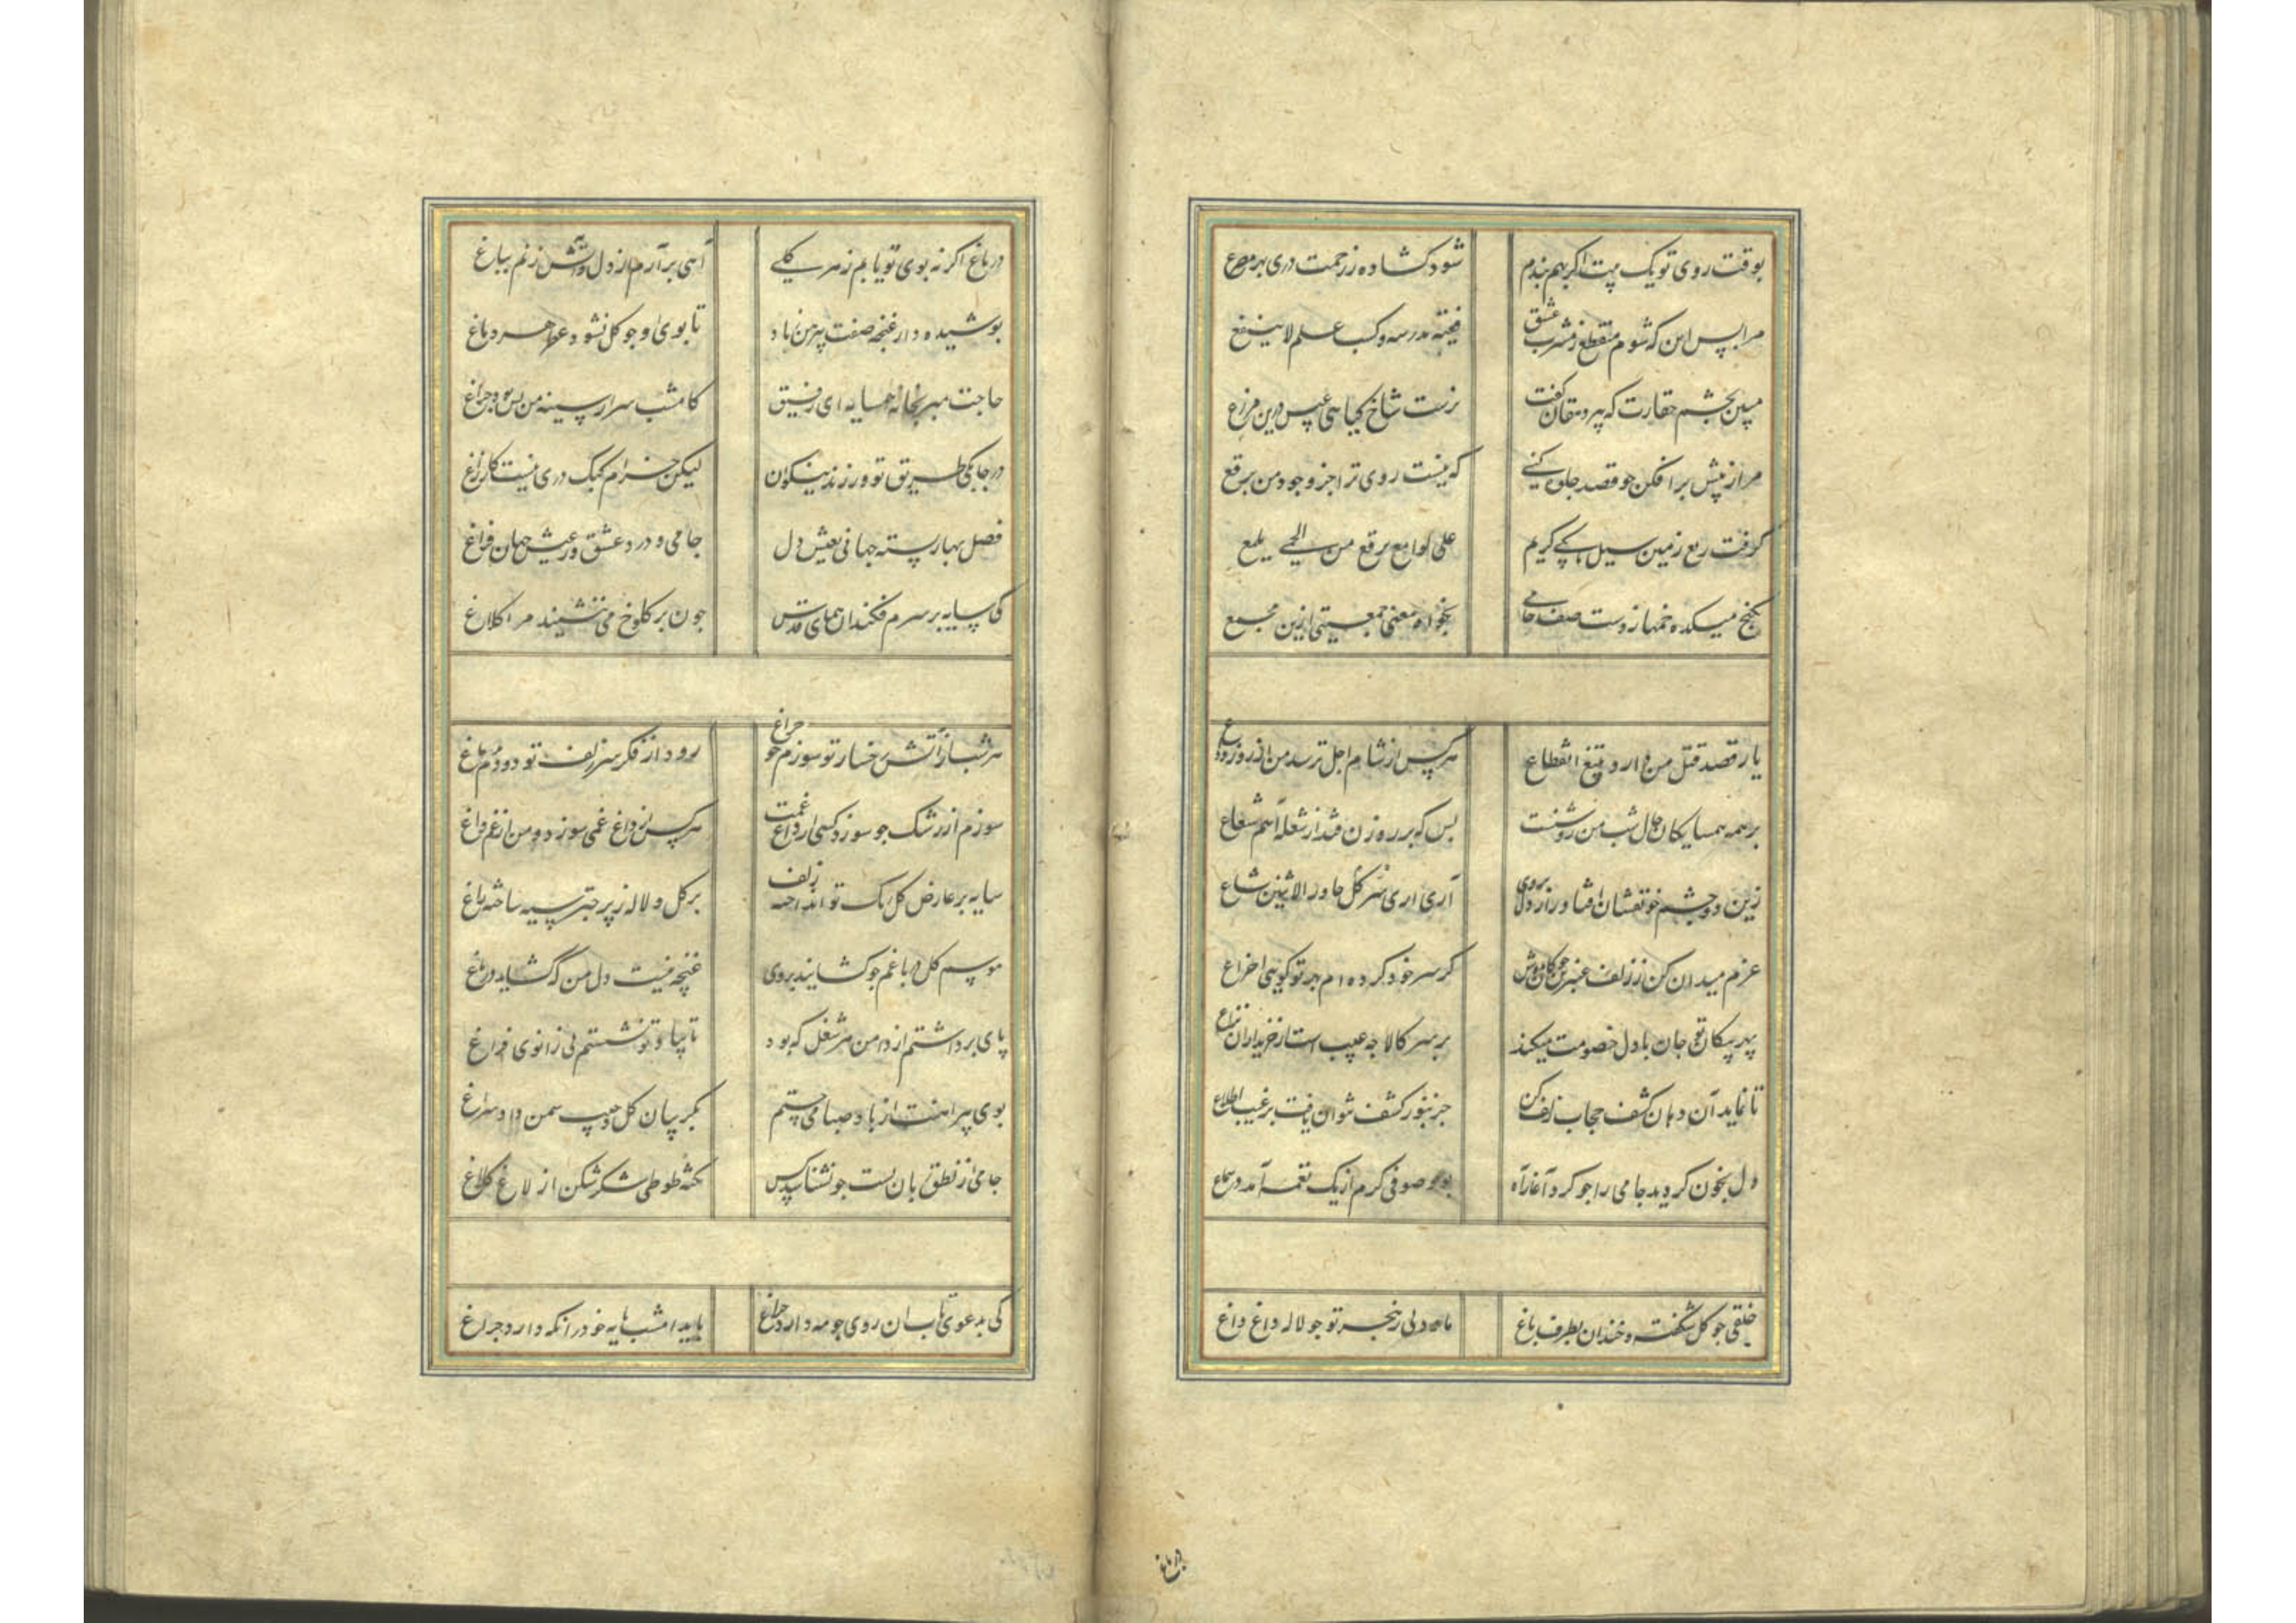 بوقت روی تو یک بیت اگر بهم بندم شود کشاده ز رحمت دری بهر مصرع
مرا پس این که شوم منقطع ز مشرب عشق فقیه مدرسه و کسب علم لا ینفع
مبین بچشم حقارت که پیر دهقان گفت نرست شاخ کیاهی عبث درین مزرع
مرا ز پیش برافکن جو قصد جلوه کنی که نیست روی ترا جز وجود من برقع
کرفت ربع زمین سیل کریم علی لوامع برق من الحمی یلمع
بکنج میکده خمها زدست صف جامی بخواه معنی جمعیتی ازین مجمع
یار قصد قتل من دارد بتیغ انقطاع هر کس از شام اجل ترسد من از روز وداع
بر همه همسایکان حال شب من روشنست بس که بر روزن فتد از شعله آهم شعاع
زین دو چشم خونفشان افتاد راز دل بروی آری آری سر کل جاوز الاثنین شاع
عزم میدان کن ز زلف عنبرین جوکان بدوش کز سر خود کرده ام بهر تو کویی اختراع
بهر پیکان تو جان با دل خصومت میکند بر سر کالا جه عیب است از خریداران نزاع
تا نماید آن دهان کشف حجاب زلف کن جز بنور کشف نتوان یافت بر غیب اطلاع
دل بخون کردید جامی را جو کرد آغاز آه صوفی کرم از یک نغمه آمد در سماع
خلقی جو کل شکفته و خندان بطرف باغ ما و دلی ز هجر تو جو لاله داغ داغ
در باغ
در باغ اکر نه بوی تو یابم ز هر کلی آهی برآرم از دل و آتش زنم بباغ
پوشیده دار غنچه صفت پیرهن ز باد تا بوی او جو کل نشود عطر هر دماغ
حاجت مبر بخانه همسایه ای رفیق کامشب شرار سینه من بس بود جراغ
در جابکی طریق تو ورزند نیکوان لیکن خرام کبک دری نیست کار زاغ
فصل بهار بسته جهانی بعیش دل جامی و درد عشق و ز عیش جهان فراغ
کی سایه بر سرم فکند آن همای قدس جون بر کلوخ می ننشیند مرا کلاغ
هر شب از آتش رخسار تو سوزم جو جراغ رود از فکر سر زلف تو دودم بدماغ
سوزم از رشک جو سوزد کسی از داغ غمت هر کس از داغ غمی سوزد و من از غم داغ
سایه بر عارض کل رنک تو انداخته زلف بر کل و لاله ز پر جتر سیه ساخته زاغ
موسم کل در باغم جو کشایند بروی غنچه نیست دل من که کشاید در باغ
پای برداشتم از دامن هر شغل که بود تا بیاد تو نشستم پی زانوی فراغ
بوی پیراهنت از باد صبا می جستم بکریبان کل و جیب سمن داد سراغ
جامی از نطق زبان بست جو نشناسد کس نکته طوطی شکر شکن از لاغ کلاغ
کی بدعوی تاب آن روی جو مه دارد جراغ باید امشب پایه خود را نکه دارد جراغ